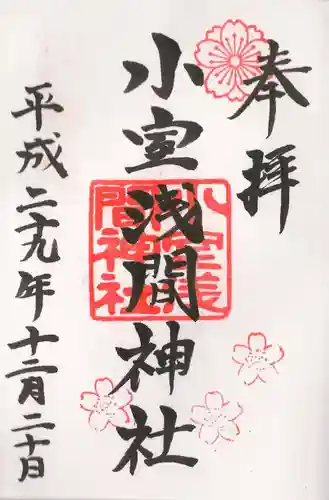 奉拝
小室浅間神社
小室浅
間神社
平成二十九年十二月二十日